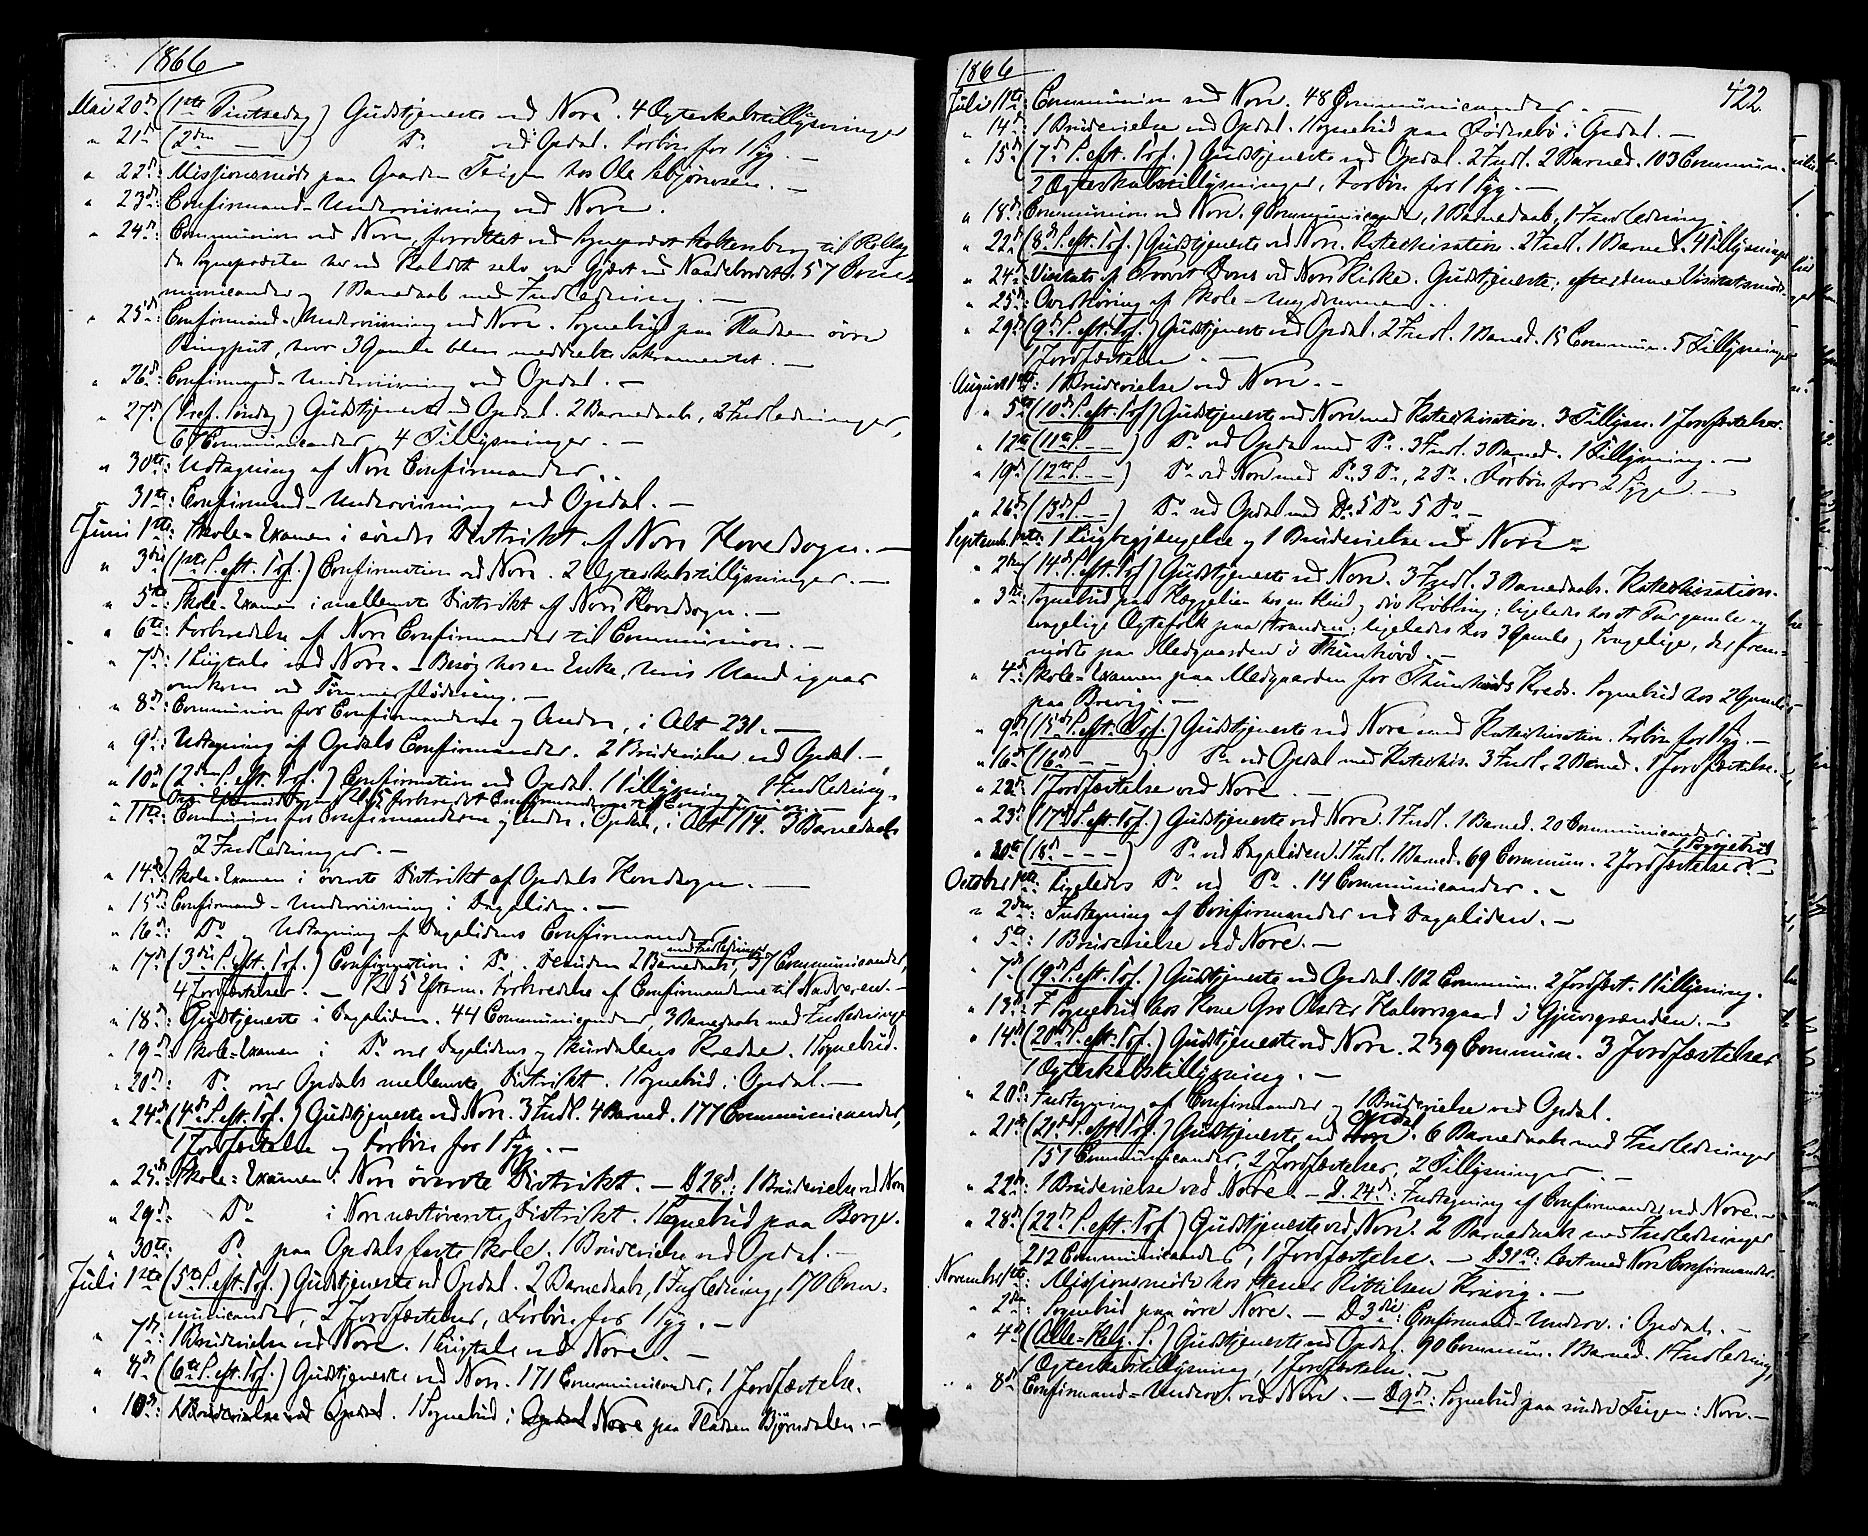 1866
Mai 20de (1ste Pintsedag) Gudstjeneste ved Nore. 4 Ægteskabstillysninger
" 21de (2den — ) Do ved Opdal. Forbøn for 1 Syg. —
" 22de: Missionsmøde paa Gaarden Teigen hos Ole Asbjørnsen. —
" 23de: Confirmand-Underviisning ved Nore.
" 24de: Communion ved Nore, forrettet ved Sognepræst Stoltenberg til Rollag
da Sognepræsten her ved Kaldet selv var Gjæst ved Naadebordet. 57 Com-
municander og 1 Barnedaab med Indledning. —
" 25de: Confirmand-Underviisning ved Nore. Sognebud paa Pladsen øvre
hvor 3 Gamle bleve meddeelte Sakramentet. —
" 26de: Confirmand-Underviisning ved Opdal. —
" 27de (Tref. Søndag) Gudstjeneste ved Opdal. 2 Barnedaab, 2 Indledninger,
67 Communicander, 4 Tillysninger. —
" 30te: Udtagning af Nore Confirmander.
" 31te: Confirmand-Underviisning ved Opdal. —
Juni 1ste: Skole-Examen i søndre Distrikt af Nore Hovedsogn. —
" 3die (1ste S. eft. Tref.) Confirmation ved Nore. 2 Ægteskabstillysninger. —
" 5te: Skole-Examen i mellemste Distrikt af Nore Hovedsogn. —
" 6te: Forberedelse af Nore Confirmander til Communion. —
" 7de: 1 Liigtale ved Nore. — Besøg hos en Enke, hvis Mand igaar
omkom ved Tømmerflødning. —
" 8de: Communion for Confirmanderne og Andre, i Alt 231. —
" 9de: Udtagning af Opdals Confirmander. 2 Brudevielser ved Opdal. —
" 10de (2den S. eft. Tref.) Confirmation ved Opdal. 1 Tillysning. 1 Indledning.
Om Eftermiddagen Kl. 5 forberedet Confirmanderne til Communion. —
" 11te: Communion for Confirmanderne og andre i Opdal, i Alt 114. 3 Barnedaab
og 2 Indledninger. —
" 14de: Skole-Examen i øverste Distrikt af Opdals Hovedsogn. —
" 15de: Confirmand-Underviisning i Dagaliden. —
" 16de: Do og Udtagning af Dagalidens Confirmander
" 17de (3die S. eft. Tref.) Confirmation i Do. Desuden 2 Barnedaab med Indledninger, 37 Communicander,
4 Jordfæstelser. — Kl. 5 Efterm. Forberedelse af Confirmanderne til Nadveren. —
" 18de: Gudstjeneste i Dagaliden. 44 Communicander, 3 Barnedaab med Indledninger
" 19de: Skole-Examen i Do over Dagalidens og Skurdalens Kredse. 1 Sognebud.
" 20de: Do over Opdals mellemste Distrikt. 1 Sognebud i Opdal. —
" 24de (4de S. eft. Tref.) Gudstjeneste ved Nore. 3 Indl. 4 Barned. 177 Communicander,
1 Jordfæstelse og Forbøn for 1 Syg. —
" 25de: Skole-Examen i Nore øverste Distrikt. — D. 28de: 1 Brudevielse ved Nore
" 29de: Do i Nore næstøverste Distrikt. 1 Sognebud paa Borge.
" 30te: Do paa Opdals faste Skole. 1 Brudevielse ved Opdal. —
Juli 1ste (5te S. eft. Tref.) Gudstjeneste ved Opdal. 2 Barnedaab, 1 Indledning, 170 Com-
municander, 2 Jordfæstelser, Forbøn for 1 Syg. —
" 7de: 1 Brudevielse ved Nore. 1 Liigtale ved Nore. —
" 8de (6te S. eft. Tref.) Gudstjeneste ved Nore. 171 Communicander, 1 Jordfæstelse.
" 10de: 1 Brudevielse ved Opdal. 1 Sognebud i Opdal Nore paa Pladsen Bjørndalen. —
1866
422.
Juli 11te: Communion ved Nore. 48 Communicander. —
" 14de: 1 Brudevielse ved Opdal. 1 Sognebud paa i Opdal. —
" 15de (7de S. eft. Tref.) Gudstjeneste ved Opdal. 2 Indl. 2 Barned. 103 Commun.
2 Ægteskabstillysninger, Forbøn for 1 Syg. —
" 18de: Communion ved Nore. 9 Communicander, 1 Barnedaab, 1 Indledning.
" 22de (8de S. eft. Tref.) Gudstjeneste ved Nore. Katechisation. 2 Indl. 1 Barned. 4 Tillysninger
" 24de: Visitats af Provst ved Nore Kirke. Gudstjeneste; efter denne Visitatsmøde.
" 25de: Overhøring af Skole-Ungdommen.
" 29de (9de S. eft. Tref.) Gudstjeneste ved Opdal. 2 Indl. 1 Barned. 15 Commun. 5 Tillysninger
1 Jordfæstelse. —
August 1ste: 1 Brudevielse ved Nore. —
" 5te (10de S. eft. Tref.) Gudstjeneste ved Nore med Katechisation. 3 Tillysn. 1 Jordfæstelse.
" 12te (11te S. — —) Do ved Opdal med Do. 3 Indl. 3 Barned. 1 Tillysning. —
" 19de (12te S. — —) Do ved Nore med Do. 3 Do, 2 Do. Forbøn for 2 Syge. —
" 26de (13de S. — —) Do ved Opdal med Do 5 Do 5 Do —
Septemb. 1ste: 1 Liigbegjængelse og 1 Brudevielse ved Nore —
" 2den (14de S. eft. Tref.) Gudstjeneste ved Nore. 3 Indl. 3 Barnedaab. Katechisation.
" 3die: Sognebud paa hos en blind og døv Krøbling; ligeledes hos et Par gamle og
svagelige Ægtefolk paa Stranden; ligeledes hos 3 Gamle og Svagelige, der frem-
mødte paa Medgaarden i Thunhovd. —
" 4de: Skole-Examen paa Medgaarden for Thunhovds Kreds. Sognebud hos 2 Gamle
paa Brevig. —
" 9de (15de S. eft. Tref.) Gudstjeneste ved Nore med Katechisation. Forbøn for 1 Syg. —
" 16de (16de — — ) Do ved Opdal med Katechis. 3 Indl. 2 Barned. 1 Jordfæstelse. —
" 22de: 1 Jordfæstelse ved Nore. —
" 23de (17de S. eft. Tref.) Gudstjeneste ved Nore. 1 Indl. 1 Barned. 20 Communicander. 1 Sognebud
" 30te (18de — — —) Do ved Dagaliden. 1 Indl. 1 Barned. 69 Commun. 2 Jordfæstelser. —
October 1ste: Ligeledes Do ved Do. 14 Communicander. —
" 2den: Indtagning af Confirmander ved Dagaliden. —
" 5te: 1 Brudevielse ved Nore. —
" 7de (19de S. eft. Tref.) Gudstjeneste ved Opdal. 102 Commun. 2 Jordfæst. 1 Tillysning.
" 13de: 1 Sognebud hos Kone Gro Olsdtr Halvorsgaard i Gjuvsgrænden. —
" 14de (20de S. eft. Tref.) Gudstjeneste ved Nore. 239 Commun. 3 Jordfæstelser
1 Ægteskabstillysning. —
" 20de: Indtagning af Confirmander og 1 Brudevielse ved Opdal.
" 21de (21de S. eft. Tref.) Gudstjeneste ved Nore Opdal. 6 Barnedaab med Indledninger
151 Communicander, 2 Jordfæstelser, 2 Tillysninger. —
" 22de: 1 Brudevielse ved Nore. — D. 24de: Indtagning af Confirmander ved Nore. —
" 28de (22de S. eft. Tref.) Gudstjeneste ved Nore. 2 Barnedaab med Indledninger
212 Communicander, 1 Jordfæstelse. — D. 31te: Læst med Nore Confirmander.
November 1ste: Missionsmøde hos Stener Kittilsen Kravig. —
" 2den: Sognebud paa øvre Nore. — D. 3die: Confirmand-Underv. i Opdal. —
" 4de (Alle-Helg. S.) Gudstjeneste ved Opdal. 90 Commun. 1 Barned. 1 Indledning,
1 Ægteskabstillysning, 1 Jordfæstelse. —
" 8de: Confirmand-Underv. ved Nore. — D. 9de: Sognebud paa søndre Teigen i Nore. —